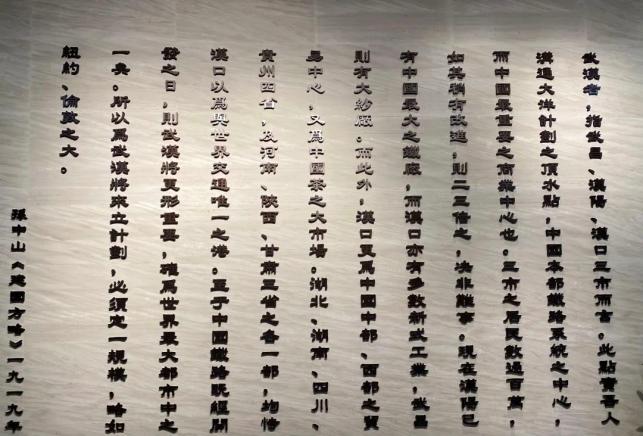 武漢者，指武昌、漢陽、漢口三市而言。此點實吾人
溝通大洋計劃之頂水點，中國本部鐵路系統之中心，
而中國最重要之商業中心也。三市之居民數過百萬，
如其稍有改進，則二三倍之，決非難事。現在漢陽已
有中國最大之鐵廠，而漢口亦有多數新式工業，武昌
則有大紗廠。而此外，漢口更爲中國中部、西部之貿
易中心，又爲中國茶之大市場。湖北、湖南、四川、
貴州四省，及河南、陝西、甘肅三省之各一部，均恃
漢口以爲與世界交通唯一之港。至于中國鐵路既經開
發之日，則武漢將更形重要，確爲世界最大都市中之
一矣。所以爲武漢將來立計劃，必須定一規模，略如
紐約、倫敦之大。
孫中山《建國方略》一九一九年